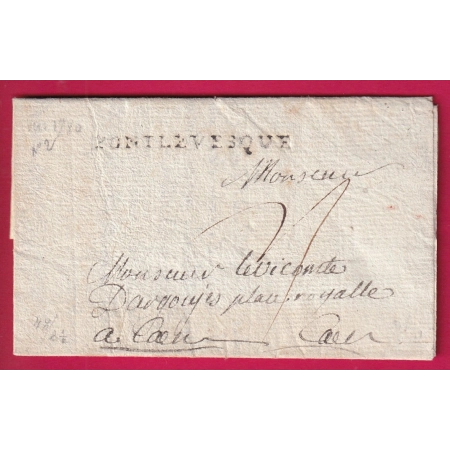 1780
N°2
PONTLEVESQUE
A Monsieur
Monsieur le vicomte
Dargouges place royalle
a Caen Caen